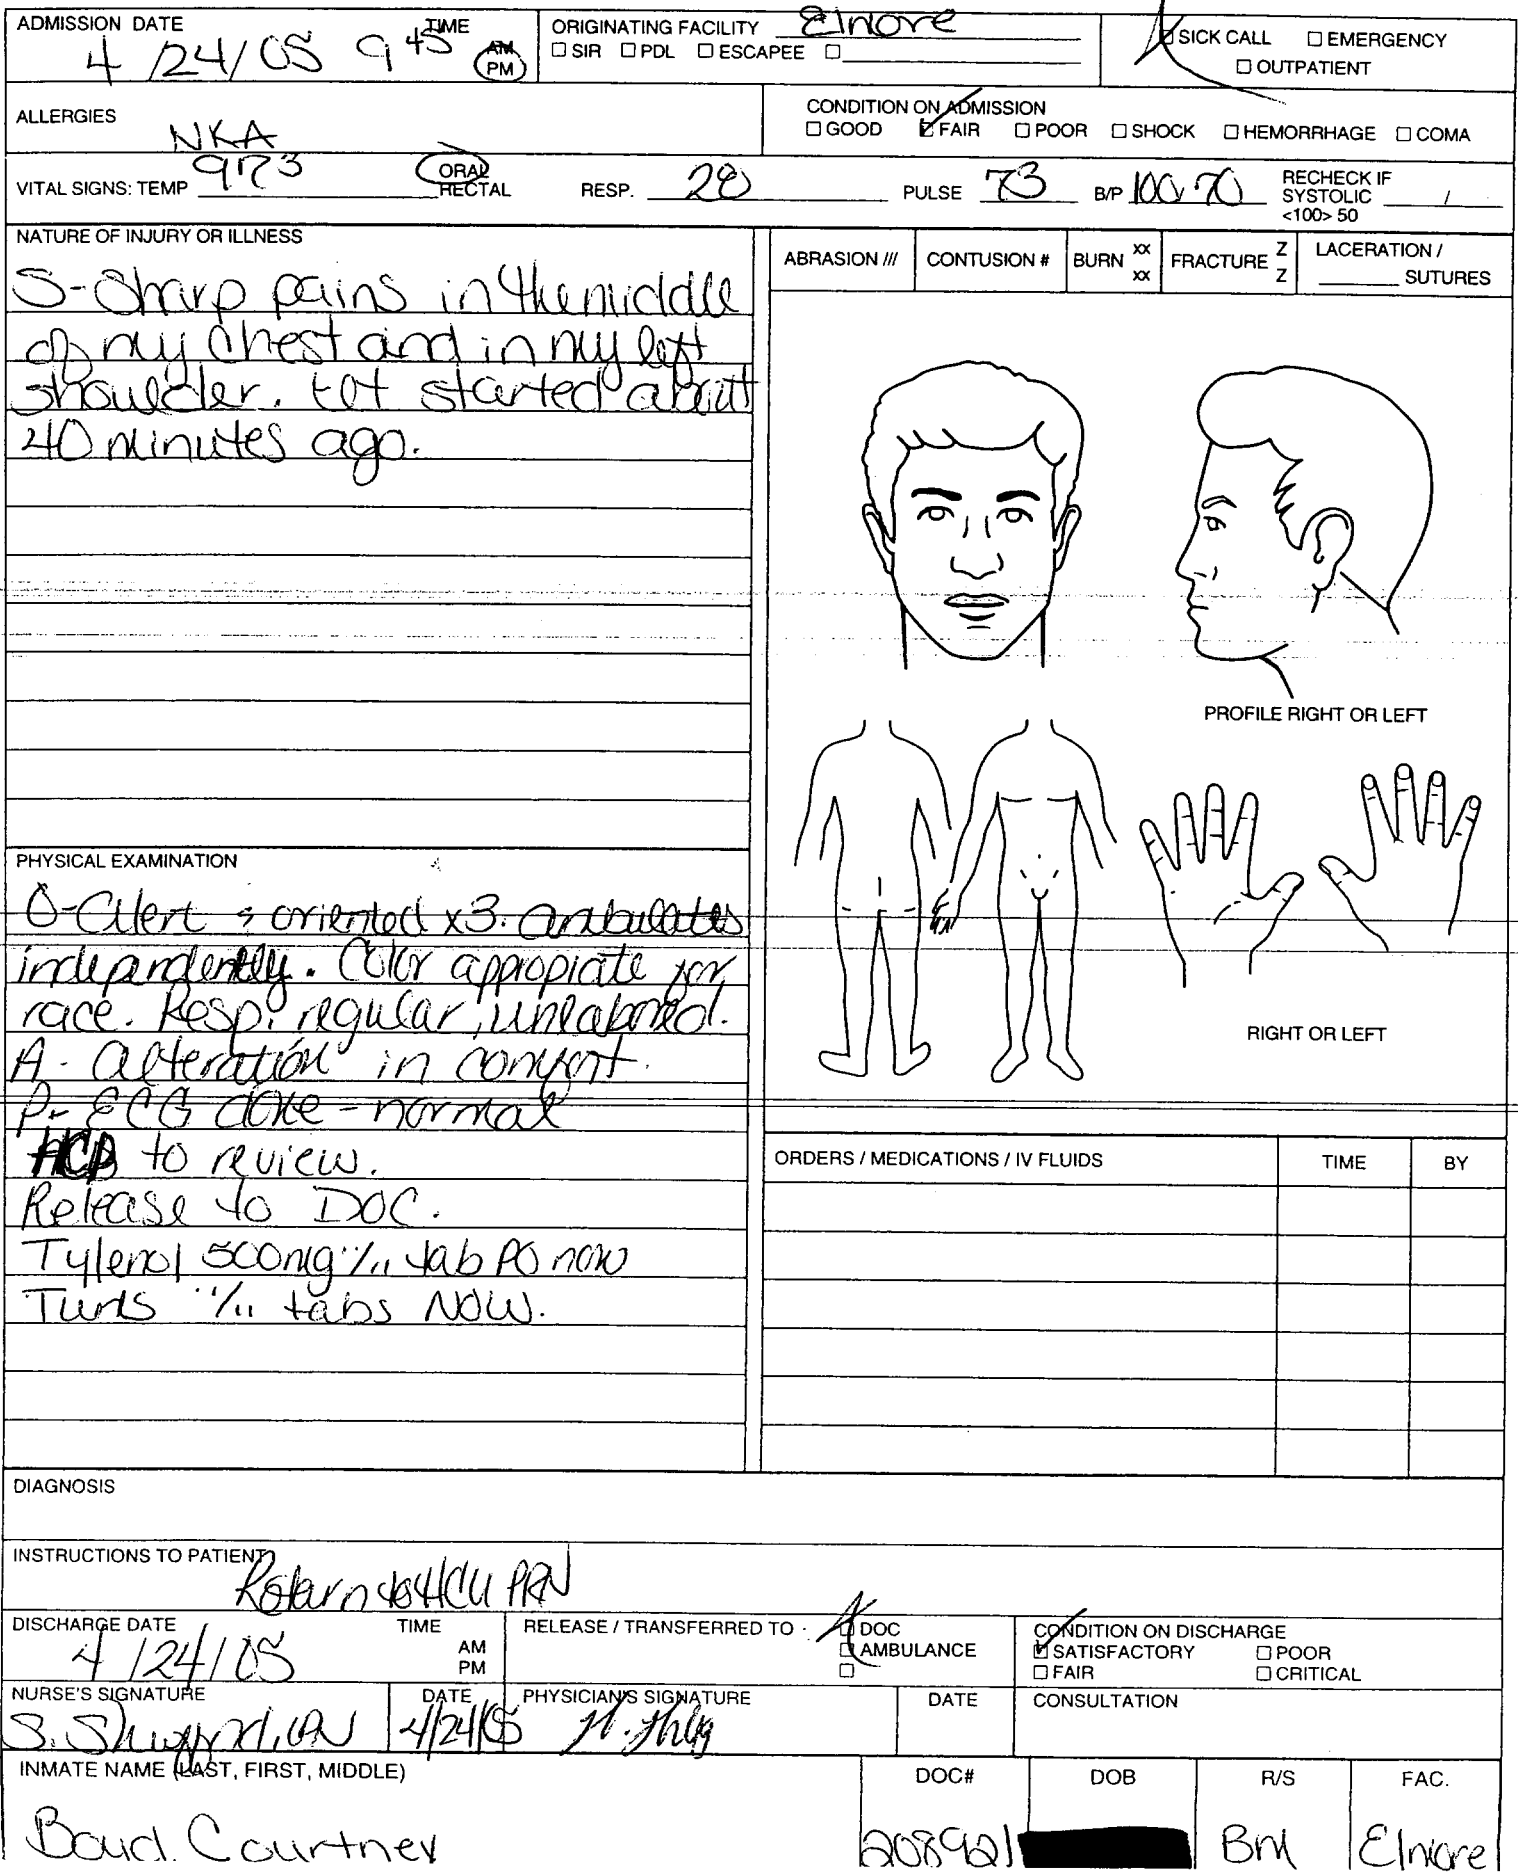 ADMISSION DATE TIME ORIGINATING FACILITY Elmore
4/24/05 9 45 AM PM
☐ SIR ☐ PDL ☐ ESCAPEE ☐
☑ SICK CALL ☐ EMERGENCY
☐ OUTPATIENT
ALLERGIES
NKA
CONDITION ON ADMISSION
☐ GOOD ☑ FAIR ☐ POOR ☐ SHOCK ☐ HEMORRHAGE ☐ COMA
VITAL SIGNS: TEMP 973 ORAL RECTAL RESP. 20 PULSE 73 B/P 100/70 RECHECK IF SYSTOLIC <100> 50 /
NATURE OF INJURY OR ILLNESS
S-Sharp pains in the middle
of my chest and in my left
shoulder. started about
40 minutes ago.
ABRASION /// CONTUSION # BURN xx xx FRACTURE Z Z LACERATION / SUTURES
PROFILE RIGHT OR LEFT
RIGHT OR LEFT
PHYSICAL EXAMINATION
O-Alert & oriented x3. ambulates
independently. Color appropiate for
race. Resp. regular, unlabored.
A- alteration in comfort.
P- ECG done - normal
HCP to review.
Release to DOC.
Tylenol 500mg ii tab PO now
Tums ii tabs NOW.
ORDERS / MEDICATIONS / IV FLUIDS TIME BY
DIAGNOSIS
INSTRUCTIONS TO PATIENT
Return to HCU PRN
DISCHARGE DATE TIME
4/24/05 AM PM
RELEASE / TRANSFERRED TO ☑ DOC
☐ AMBULANCE
☐
CONDITION ON DISCHARGE
☑ SATISFACTORY ☐ POOR
☐ FAIR ☐ CRITICAL
NURSE'S SIGNATURE DATE PHYSICIAN'S SIGNATURE DATE CONSULTATION
S. 4/24/05
INMATE NAME (LAST, FIRST, MIDDLE) DOC# DOB R/S FAC.
Boyd, Courtney 208921 BM Elmore